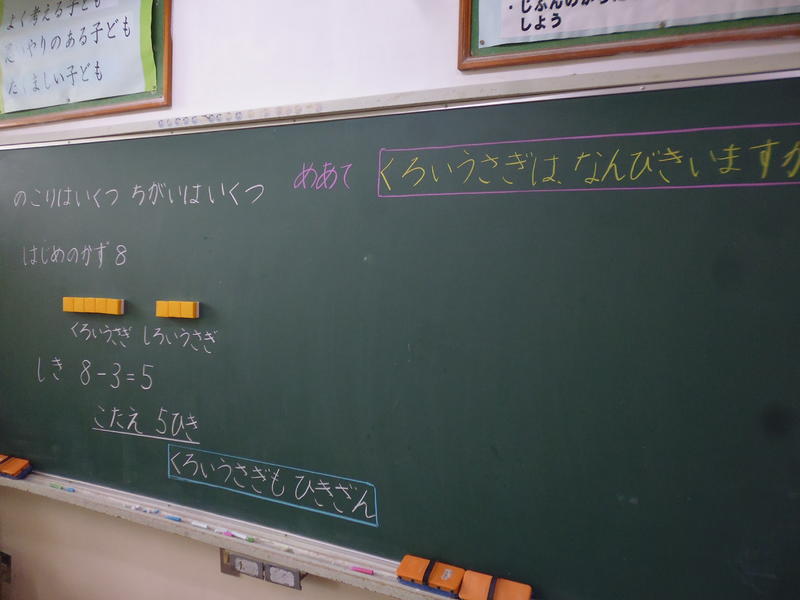 よく考える子ども
思いやりのある子ども
たくましい子ども
しよう
のこりはいくつ ちがいはいくつ
めあて くろいうさぎは、なんびきいますか
はじめのかず 8
くろいうさぎ しろいうさぎ
しき 8-3=5
こたえ 5ひき
くろいうさぎも ひきざん